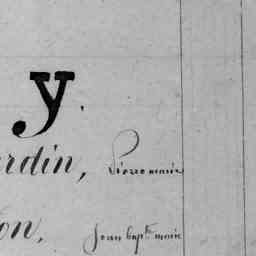 y.
rdin, Pierre marie
on, Jean bapte marie